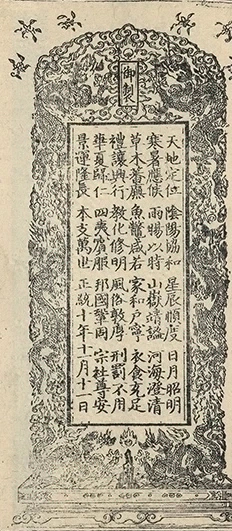 御製
天地定位　陰陽協和　星辰順度　日月昭明
寒暑應候　雨暘以時　山嶽靖謐　河海澄清
草木蕃廡　魚鼈咸若　家和戶寧　衣食充足
禮讓興行　敎化修明　風俗敦厚　刑罰不用
華夏歸仁　四夷賓服　邦國鞏固　宗社尊安
景運隆長　本支萬世　正統十年十一月十一日